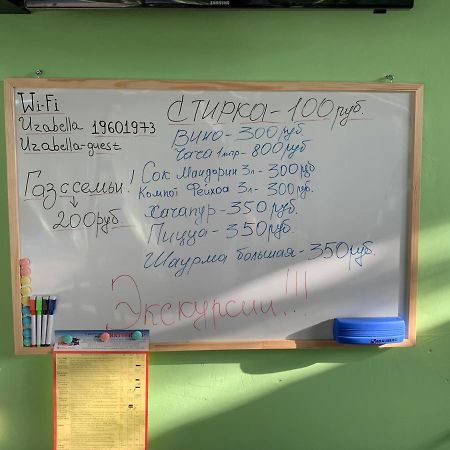 SAMSUNG
Wi-Fi
Uzabella 19601973
Uzabella-guest
Газ а семьи!
200 руб
СТИРКА - 100 руб.
Вино - 300 руб.
Чача 1 лтр - 800 руб
Сок Мандорин 3л - 300 руб
Компот Фейхоа 3л - 300 руб.
Хачапур - 350 руб.
Пицца - 350 руб.
Шаурма большая - 350 руб.
Экскурсии!!!